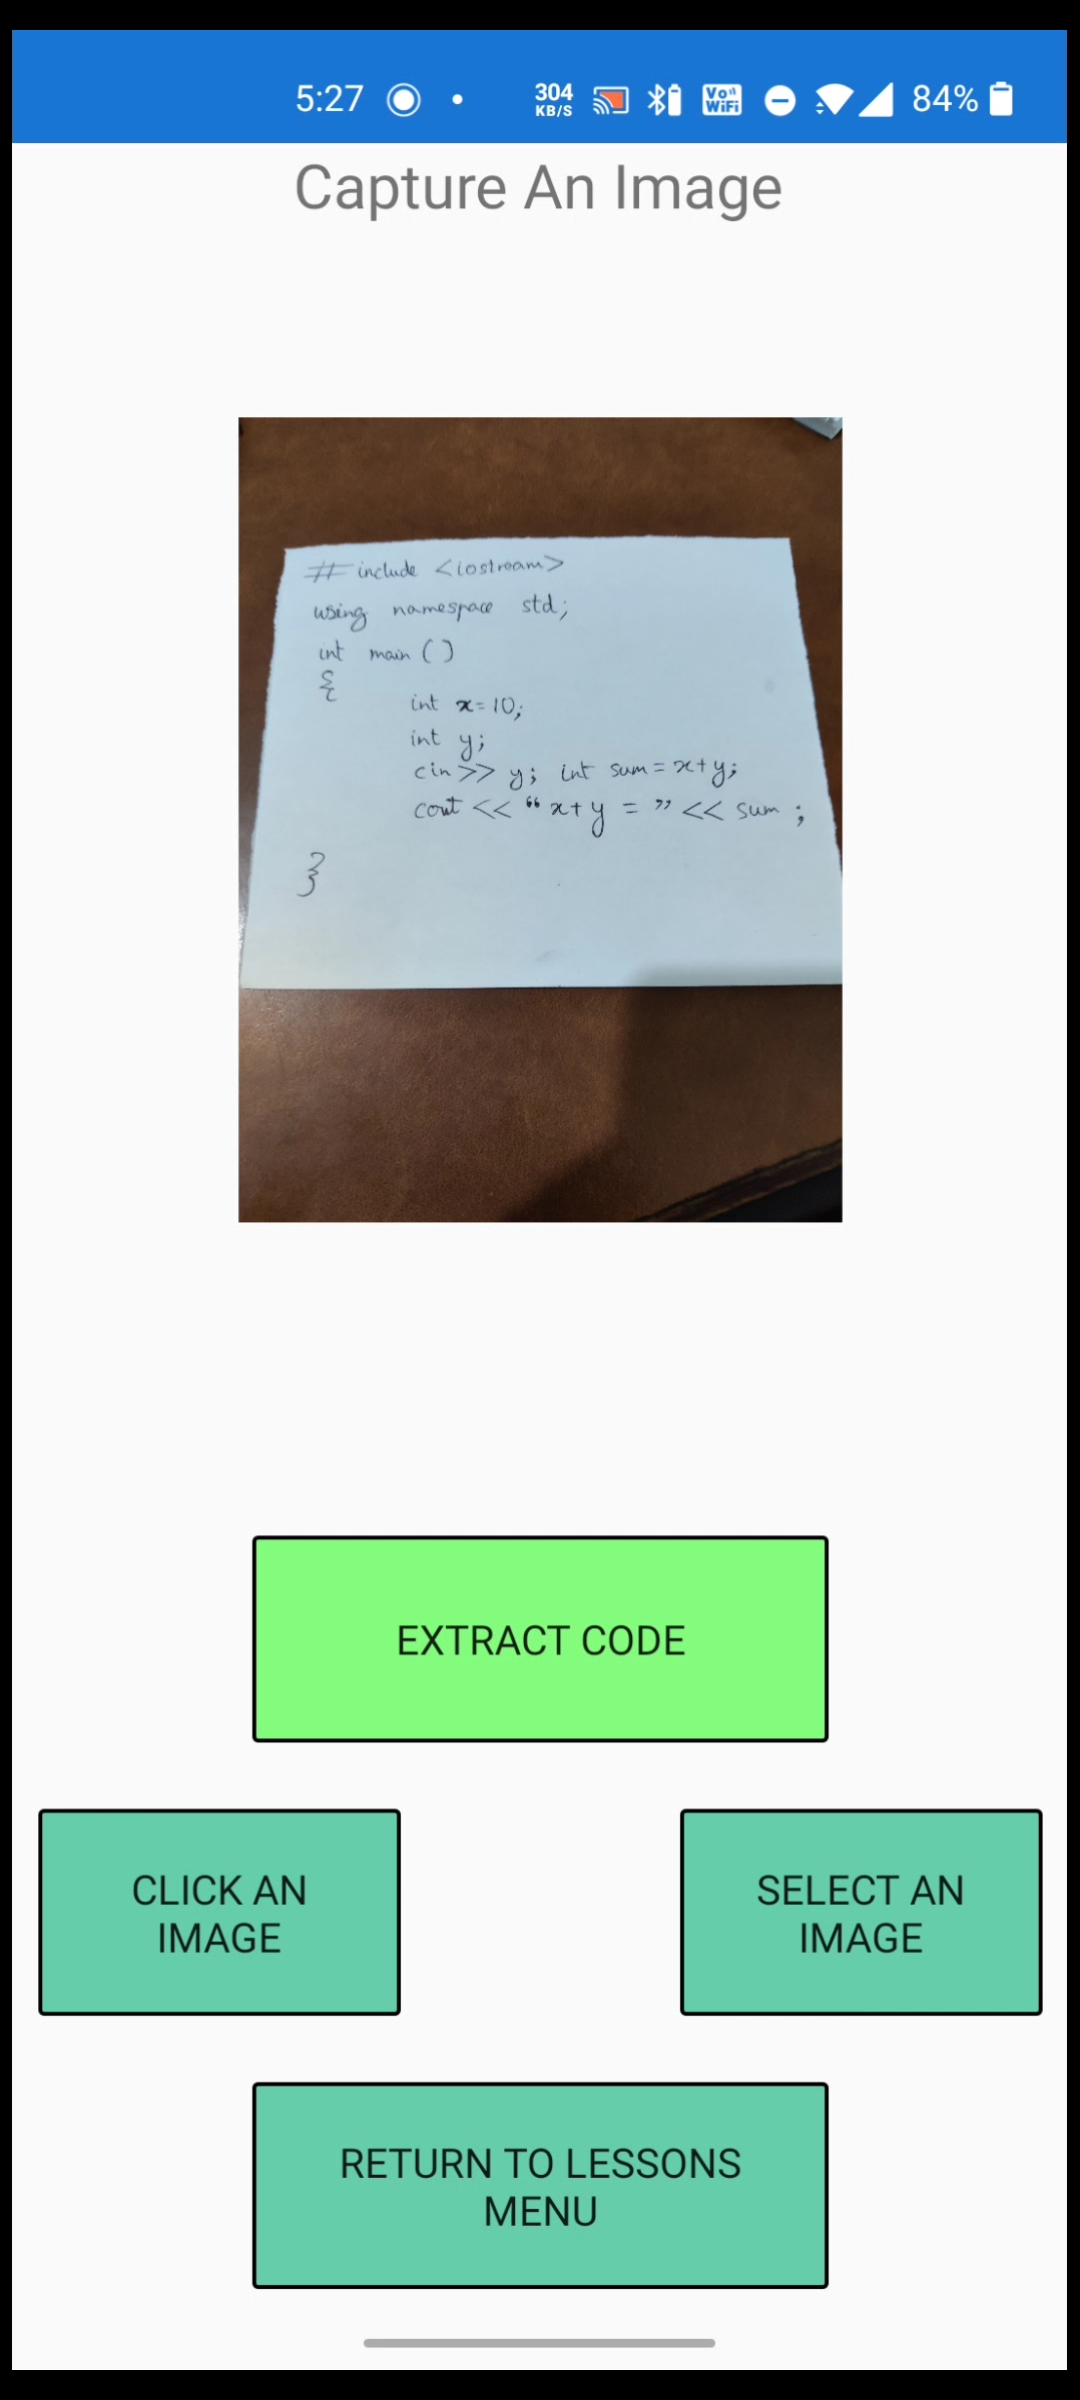 5:27 304 KB/S Vo WiFi 84%
Capture An Image
# include <iostream>
using namespace std;
int main ()
{
int x=10;
int y;
cin>> y; int sum=x+y;
cout << “x+y = ” << sum ;
}
EXTRACT CODE
CLICK AN
IMAGE
SELECT AN
IMAGE
RETURN TO LESSONS
MENU